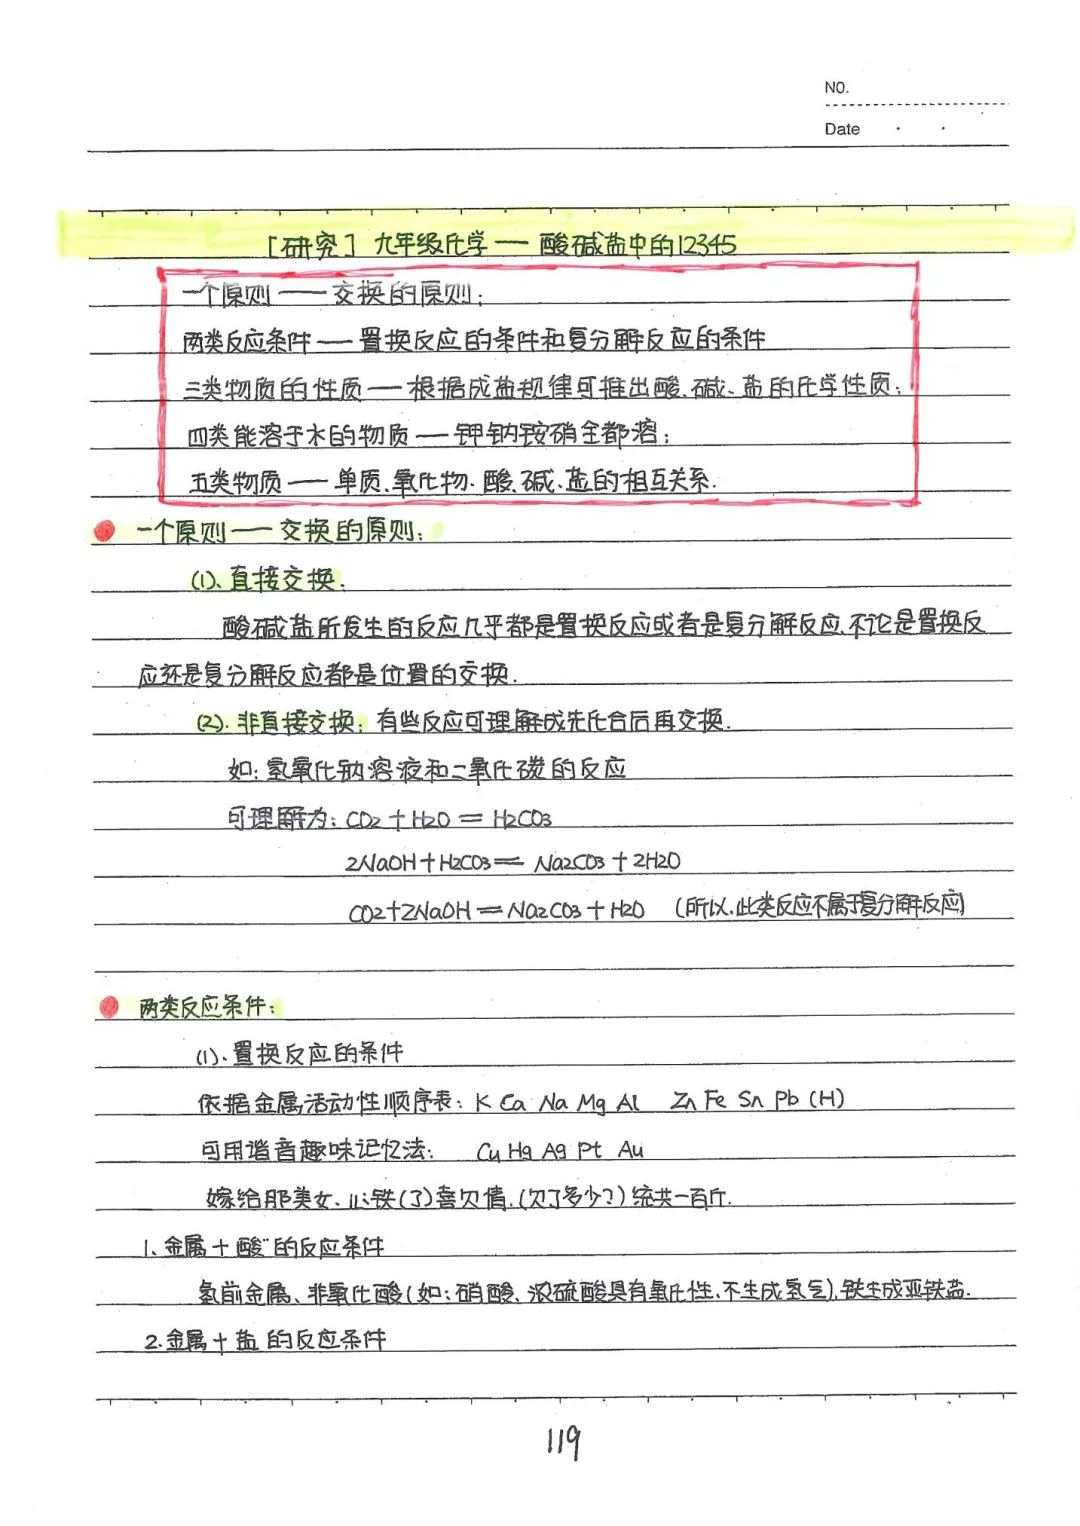 NO.
Date
[研究] 九年级化学——酸碱盐中的12345
一个原则——交换的原则;
两类反应条件——置换反应的条件和复分解反应的条件
三类物质的性质——根据成盐规律可推出酸、碱、盐的化学性质;
四类能溶于水的物质——钾钠铵硝全都溶;
五类物质——单质、氧化物、酸、碱、盐的相互关系.
一个原则——交换的原则:
(1)、直接交换.
酸碱盐所发生的反应几乎都是置换反应或者是复分解反应.不论是置换反
应还是复分解反应都是位置的交换.
(2). 非直接交换: 有些反应可理解成先化合后再交换.
如: 氢氧化钠溶液和二氧化碳的反应
可理解为: CO2+H2O=H2CO3
2NaOH+H2CO3=Na2CO3+2H2O
CO2+2NaOH=Na2CO3+H2O (所以,此类反应不属于复分解反应)
两类反应条件:
(1)、置换反应的条件
依据金属活动性顺序表: K Ca Na Mg Al Zn Fe Sn Pb (H)
可用谐音趣味记忆法: Cu Hg Ag Pt Au
嫁给那美女、心铁(了)喜欠情.(欠了多少?)统共一百斤.
1、金属+酸"的反应条件
氢前金属、非氧化酸(如:硝酸、浓硫酸具有氧化性,不生成氢气),铁生成亚铁盐.
2.金属+盐 的反应条件
119